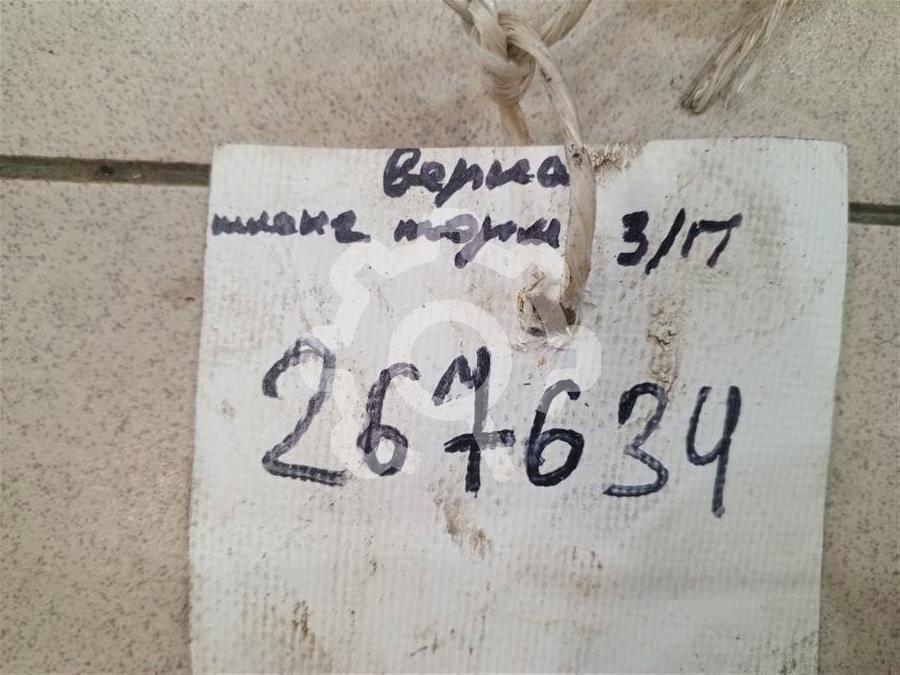 Верна
шланг торм З/П
267634